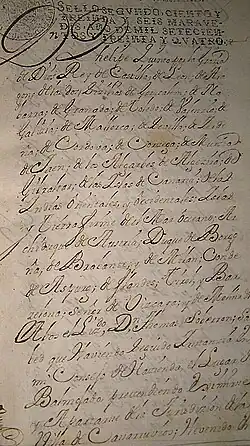 SELLO SEGVNDO, CIENTO Y
TREINTA Y SEIS MARAVE
DIS, AÑO DE MIL SETECIEN
TOS Y TREINTA Y QVATRO.
Phelipe por la gracia
de Dios, Rey de Castilla, de Leon, de Ara
gon, de las dos Sicilias, de Jerusalem, de Na
varra, de Granada, de Toledo, de Valencia, de
Galicia, de Mallorca, de Sevilla, de Cerde
ña, de Cordova, de Corcega, de Murcia,
de Jaen, de los Algarves, de Algecira, de
Gibraltar, de las Islas de Canaria, de las
Indias Orientales, y Occidentales, Islas,
y Tierra firme, del Mar Oceano, Ar
chiduque de Austria, Duque de Borgo
ña, de Brabante, y de Milan, Conde
de Abspurg, de Flandes, Tirol, y Bar
zelona, Señor de Vizcaya, y de Molina &
D. Thomas
que haviendo
mi Consejo de Hacienda, el Lugar de
pretendiendo
y de la Jurisdicion de la
Villa de